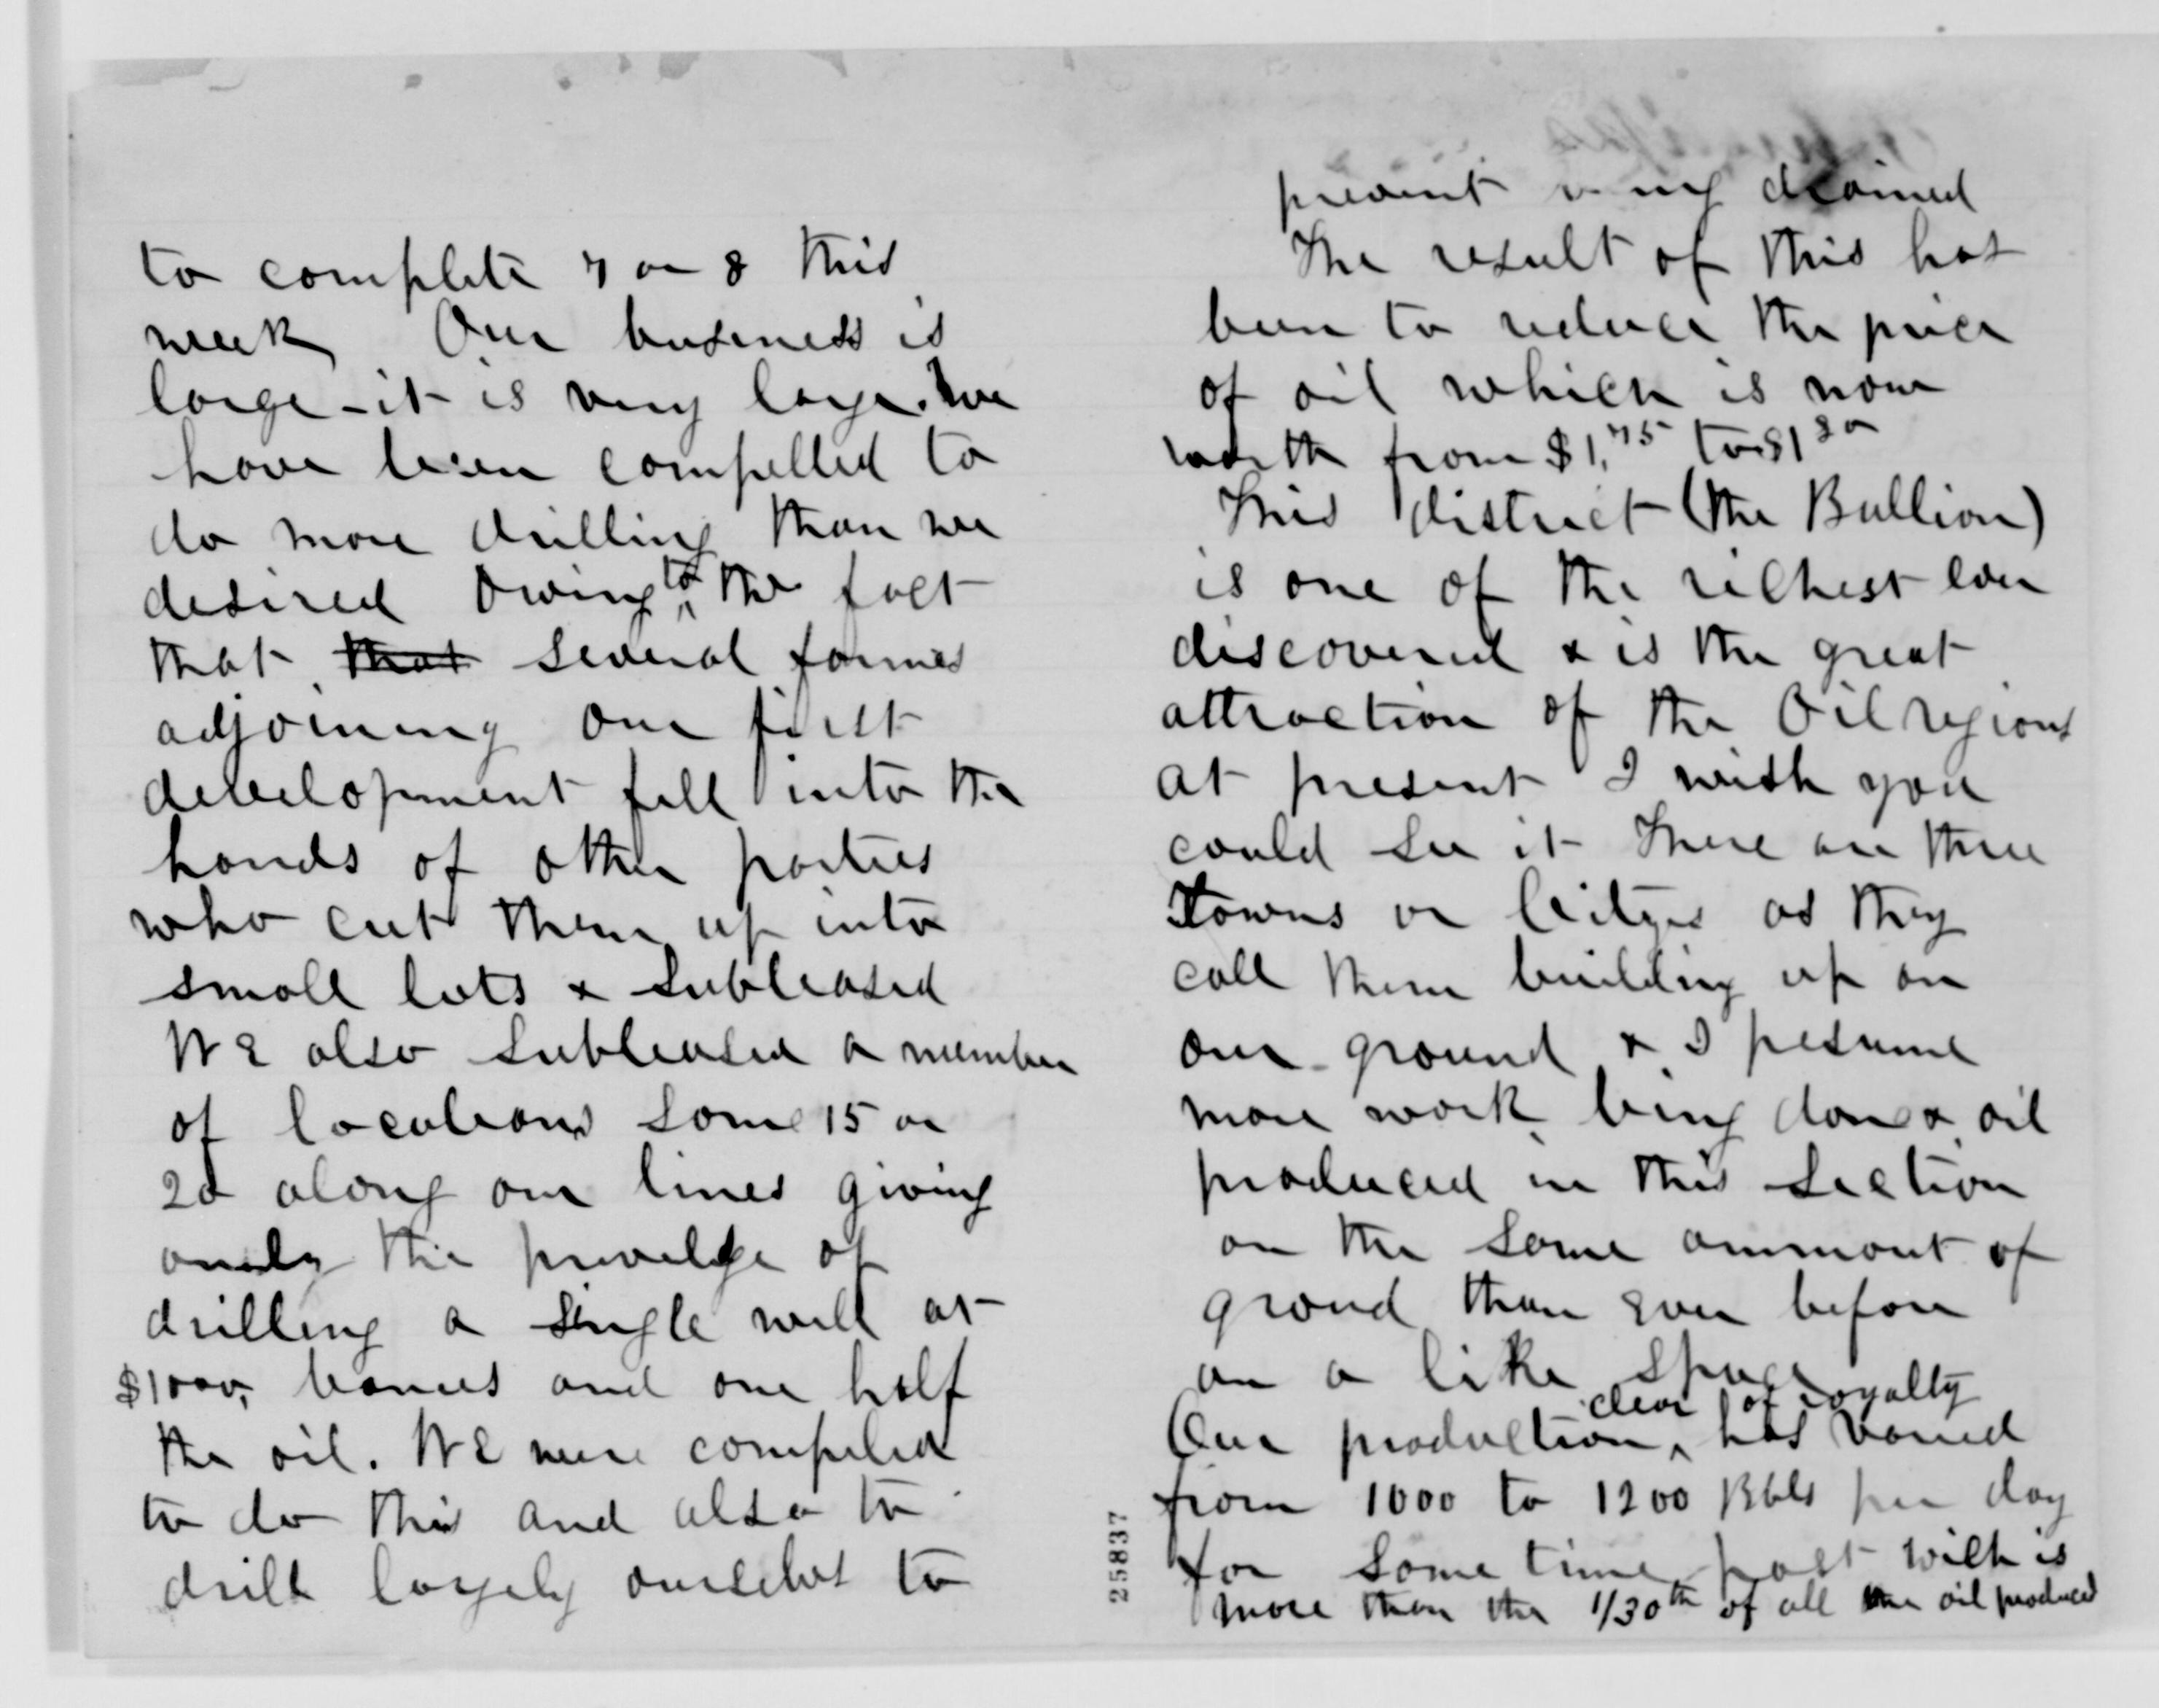 to complete 7 or 8 this
week Our business is
large - it is very large. We
have been compelled to
do more drilling than we
desired owing to the fact
that that several farmes
adjoining our first
development fell into the
hands of other parties
who cut them up into
small lots & subleased
We also subleased a number
of locations some 15 or
20 along our lines giving
only the privelge of
drilling a single well at
$1000, bonus and one half
the oil. We were compeled
to do this and also to
drill largely ourselves to
prevent being drained
The result of this has
been to reduce the price
of oil which is now
worth from $1,75 to $1 80
This district (the Bullion)
is one of the richest ever
discovered & is the great
attraction of the Oil regions
at present I wish you
could see it There are three
Towns or Citys as they
call them building up on
our ground & I pesume
more work being done & oil
produced in this section
on the same ammount of
groud than ever before
on a like space
clear of royalty
Our production, has varied
from 1000 to 1200 Bbls per day
for some time past wich is
more than the 1/30th of all the oil produced
25837